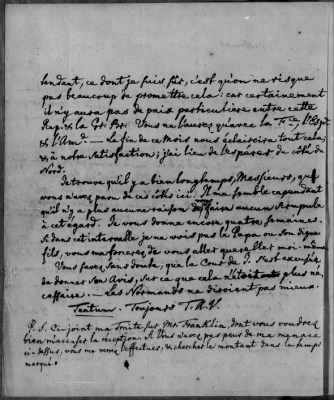 tendant, ce dont je suis sûr, c'est qu'on ne risque
pas beaucoup de promettre cela: car certainement
il n'y aura pas de paix particuliere entre cette
Puiss. & la Gr. Br. Vous ne l'aurez qu'avec la Fr. l'Esp.
& l'Am. La fin de ce mois nous éclaircira tout cela,
& à notre satisfaction; j'ai bien de l'espérer du côté du
Nord.
Je trouve qu'il y a bien longtemps, Messieurs, que
vous n'avez paru de ces côtés ici. Il me semble cependant
qu'il n'y a plus aucune raison aucun scrupule
à cet égard. Je vous donne encore quatre semaines.
Si dans cet intervalle je ne vois pas le Papa ou son digne
fils, vous me forcerez de vous aller quereller moi-même.
Vous savez sans doute, que la Cour de J. s'est excusée
de donner son Avis, sur ce que cela n'étoit plus né-
cessaire. Les Normands ne diroient pas mieux.
Tantum. Toujours T. A. V.
P. S. Ci-joint ma Traite sur Mr. Franklin, dont vous voudrez
bien m'accuser la réception. Si vous n'avez pas peur de ma menace
ci-dessus, vous me verrez l'effectuer, & chercher le montant dans le temps
marqué.